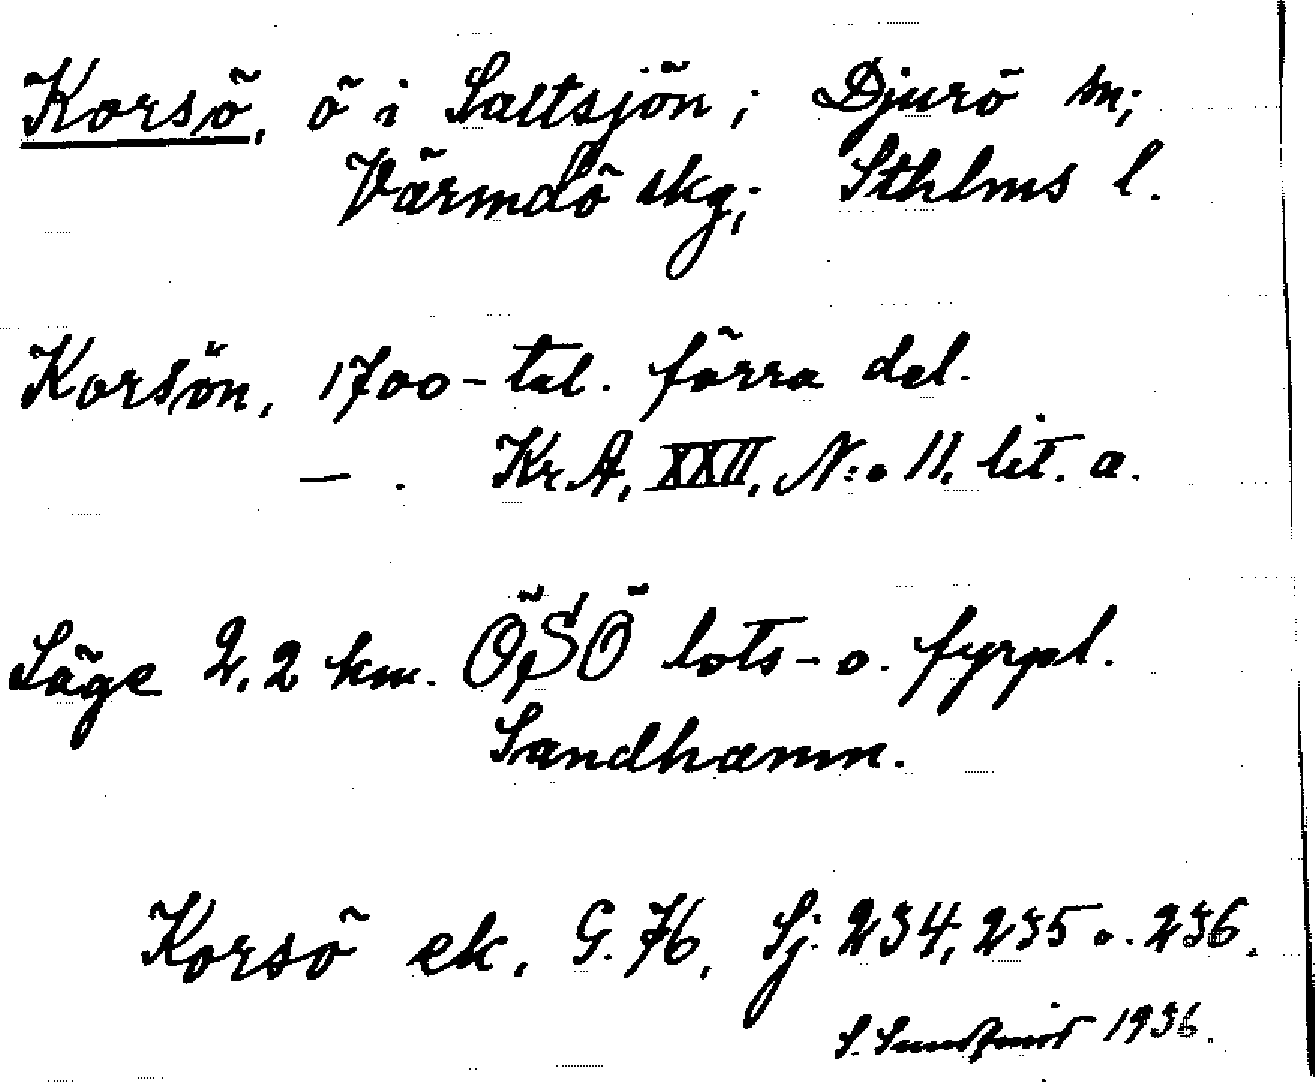 Korsö, ö i Saltsjön; Djurö sn;
Värmdö skg; Sthlms l.
Korsön, 1700-tal. förra del.
— . Kr.A, XXII, N:o 11. lit. a.
Läge 2,2 km. ÖSÖ lots- o. fyrpl.
Sandhamn.
Korsö ek. G.76, Sj. 234, 235 o. 236.
S. 1936.